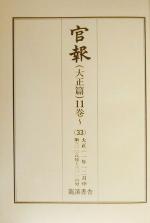 官報
(大正篇)11巻〜
(33)
大正一一年一二月中
龍溪書舎